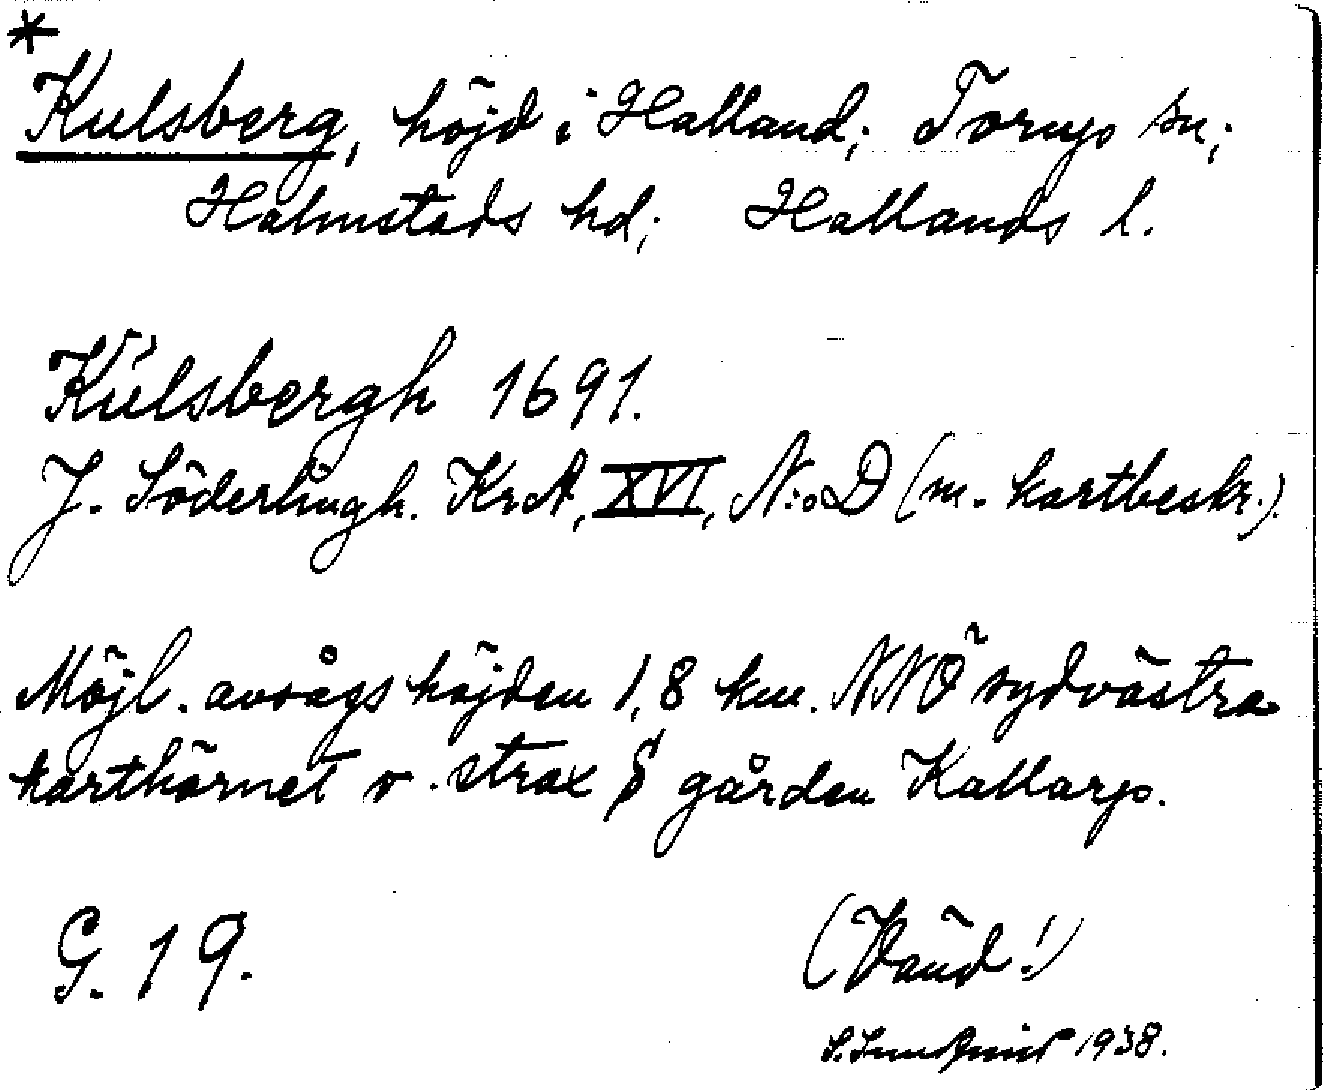 *
Kulsberg, höjd i Halland; Torups sn;
Halmstads hd; Hallands l.
Kúlsbergh 1691.
J. Söderlingh. KrA, XVI, N:o D (m. kartbeskr.).
Möjl. avsågs höjden 1,8 km. NNÖ sydvästra
karthörnet v. strax S gården Kallarp.
G. 19.
(Vänd!)
1938.